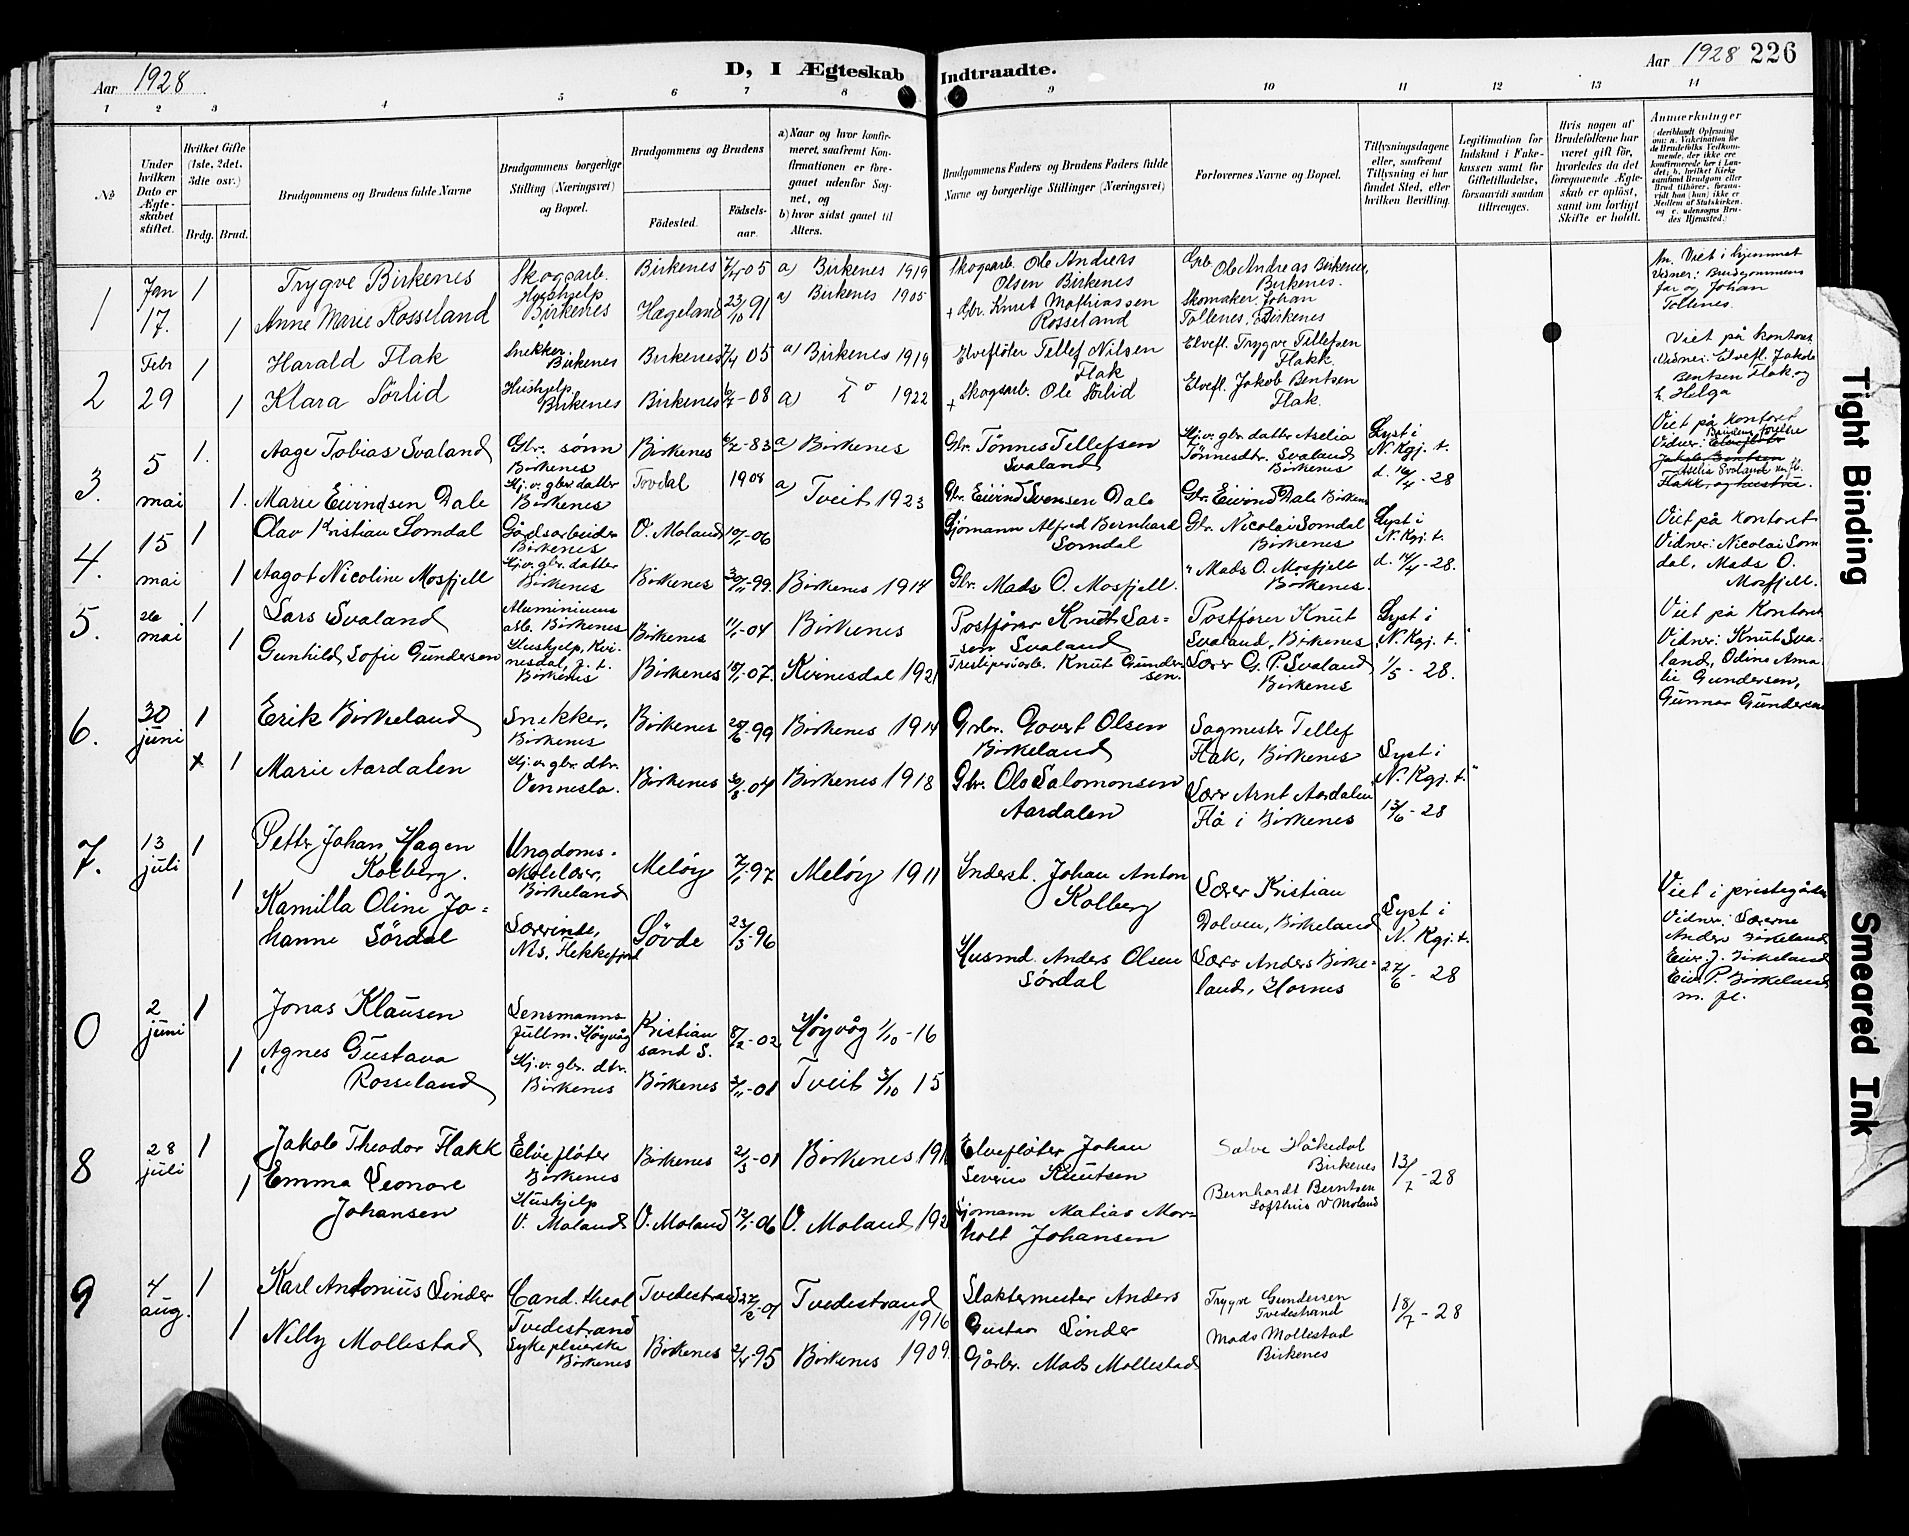 Aar 1928
D, I Ægteskab Indtraadte.
Aar 1928 226
1 2 3 4 5 6 7 8 9 10 11 12 13 14
№
Under hvilken Dato er Ægteskabet stiftet.
Hvilket Gifte (1ste, 2det, 3die osv.)
Brdg. Brud.
Brudgommens og Brudens fulde Navne
Brudgommens borgerlige Stilling (Næringsvei) og Bopæl.
Brudgommens og Brudens
Fødested. Fødselsaar.
a) Naar og hvor konfirmeret, saafremt Konfirmationen er foregaaet udenfor Sognet, og
b) hvor sidst gaaet til Alters.
Brudgommens Faders og Brudens Faders fulde Navne og borgerlige Stillinger (Næringsvei)
Forlovernes Navne og Bopæl.
Tillysningsdagene eller, saafremt Tillysning ei har fundet Sted, efter hvilken Bevilling.
Legitimation for Indskud i Enkekassen samt for Giftetilladelse, forsaavidt saadan tiltrænges.
Hvis nogen af Brudefolkene har været gift før, hvorledes da det foregaaende Ægteskab er opløst, samt om lovligt Skifte er holdt.
Anmærkninger
(deriblandt Oplysning om: a. Vakcination for de Brudefolks Vedkommende, der ikke ere konfirmerede her i Landet; b. hvilket Kirkesamfund Brudgom eller Brud tilhører, forsaavidt han (hun) ikke er Medlem af Statskirken, og c. udensogns Brudes Hjemsted.)
1 Jan 17. 1 Trygve Birkenes Skogsarb. Birkenes 7/4 05 a) Birkenes 1919 Skogsarb. Ole Andreas Olsen Birkenes Grb. Ole Andreas Birkenes, Birkenes.
1 Anne Marie Rosseland Hushjelp Birkenes Hægeland 23/10 91 a) Birkenes 1905 + Gbr. Knut Mathiassen Rosseland Skomaker Johan Tollenes, Birkenes
An. Viet i hjemmet Vidner: Brudgommens far og Johan Tollenes.
2 Febr 29 1 Harald Flak Snekker Birkenes Birkenes 7/4 05 a) Birkenes 1919 Elvefløter Tellef Nilsen Flak Elvefl. Trygve Tellefsen Flakk
1 Klara Sörlid Hushjelp Birkenes Birkenes 6/7-08 a) 1922 + Skogsarb. Ole Sörlid Elvefl. Jakob Bentsen Flak.
Viet på kontoret Vidner: Elvefl. Jakob Bentsen Flak og h. Helga
3. 5 mai 1. Aage Tobias Svaland Gbr. sönn Birkenes Birkenes 6/2-83 a Birkenes Gbr. Tønnes Tellefsen Svaland Hj.v. gbr. datter Aselia Tønnesdtr. Svaland Birkenes Lyst i N. Kgj. t.
1. Marie Eivindsen Dale Hj.v. gbr. datter Birkenes Tovdal 1908 a) Tveit 1923 Gbr. Eivind Svensen Dale Gbr. Eivind Dale Birkenes d. 16/4-28
Viet på kontoret Vidner: Elvefløter Brudens forelse Jakob Bentsen Aselia Svaland m. fl. Flakk, og hustru.
4. 15 mai 1 Olav Kristian Somdal Gårdsarbeider Birkenes Ö. Moland 10/1-06 Sjömann Alfred Bernhard Somdal Gbr. Nicolai Somdal Birkenes Lyst i N. Kgj. t.
1 Aagot Nicoline Mosfjell Hj.v. gbr. datter Birkenes Birkenes 30/11-99 Birkenes 1914 Gbr. Mads O. Mosfjell. " Mads O. Mosfjell Birkenes. d. 14/4-28.
Viet på kontoret Vidner: Nicolai Somdal, Mads O. Mosfjell.
5. 26 mai 1 Lars Svaland Aluminiumsarb. Birkenes Birkenes 11/1-04 Birkenes Postfører Knut Larsen Svaland Postfører Knut Svaland, Birkenes Lyst i N. Kgj. t.
1 Gunhild Sofie Gundersen Hushjelp, Kvinesdal, f. t. Birkenes Birkenes 18/1-07. Kvinesdal 1921 Tresliperiarb. Knut Gundersen. Lærer O. P. Svaland, Birkenes 1/5-28.
Viet på Kontoret Vidner: Knut Svaland, Odine Amalie Gundersen, Gunnar Gundersen
6. 30 juni 1 Erik Birkeland Snekker, Birkenes Birkenes 28/6-99 Birkenes 1914 Grbr. Govert Olsen Birkeland Sagmester Tellef Flak, Birkenes Lyst i N. Kgj. t.
x 1 Marie Aardalen Hj.v. gbr. dtr. Vennesla. Birkenes 30/8-04 Birkenes 1918 Gbr. Ole Salomonsen Aardalen Lærer Arnt Aardalen Flå i Birkenes 13/6-28
7. 13 juli 1 Petter Johan Hagen Kolberg. Ungdomsskolelærer, Birkeland Meløy 7/1-97 Meløy 1911 Inderst. Johan Anton Kolberg Lærer Kristian Dolven, Birkeland Lyst i N. Kgj. t.
1 Kamilla Oline Johanne Sördal Lærerinde, Nes, Flekkefjord Sövde 23/3-96 Husmd. Anders Olsen Sördal Lærer Anders Birkeland, Hornes 27/6-28
Viet i prestegården Vidner: Lærerne Anders Birkeland Eiv. J. Birkeland Eiv. P. Birkeland m. fl.
0 2 juni 1 Jonas Klausen Lensmanns fullm. Høyvåg Kristiansand S. 8/2-02 Høyvåg 1/10-16
1 Agnes Gustava Rosseland Hj.v. gbr. dtr. Birkenes Birkenes 3/11-01 Tveit 3/10 15
8 28 juli 1 Jakob Theodor Flakk Elvefløter Birkenes Birkenes 21/3-01 Birkenes 191 Elvefløter Johan Severin Knutsen Salve Håkedal Birkenes 13/7-28
1 Emma Leonore Johansen Hushjelp V. Moland V. Moland 12/1-06 V. Moland 192 Sjømann Matias Morholt Johansen Bernhardt Berntsen Lofthus V Moland
9 4 aug. 1 Karl Antonius Linder Cand. theol Tvedestrand Tvedestrand 27/2-01 Tvedestrand 1916 Slaktermester Anders Gustav Linder Trygve Gundersen Tvedestrand 18/7-28
1 Nelly Mollestad Sykepleierske Birkenes Birkenes 2/4-95 Birkenes 1909. Gårbr. Mads Mollestad Mads Mollestad Birkenes
Tight Binding
Smeared Ink